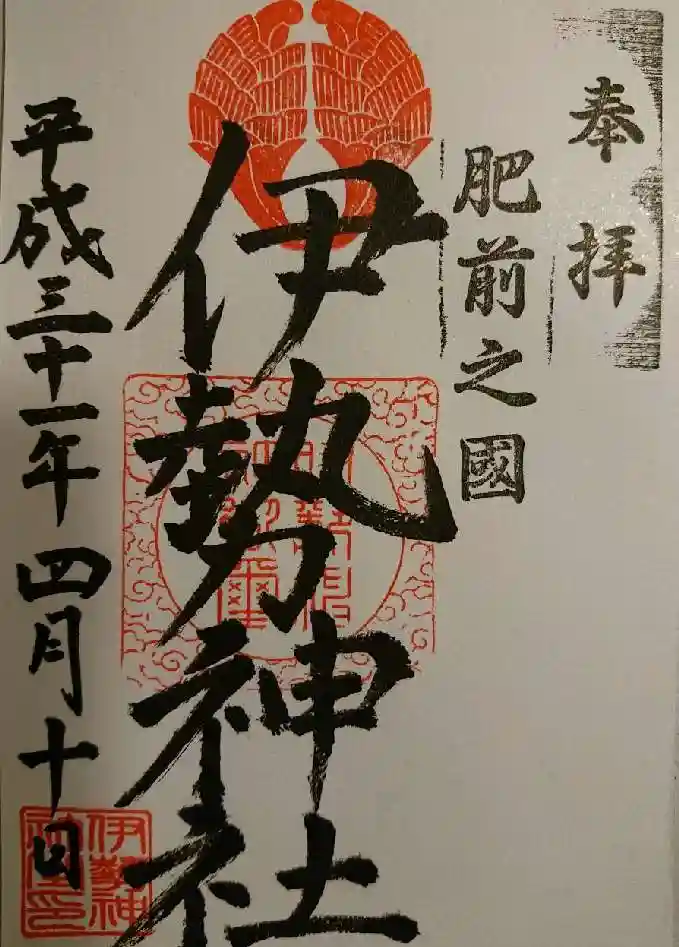 奉拝
肥前之國
伊勢神社
平成三十一年四月十日
伊勢神